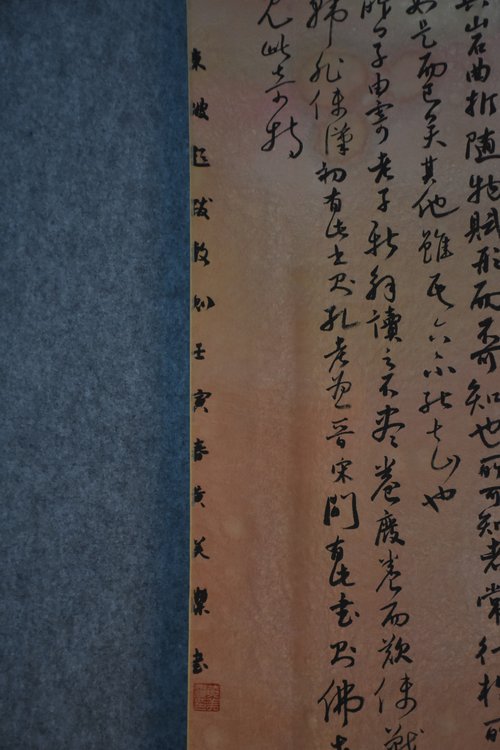 山石曲折隨物賦形而不可知也所可知者常行於
如是而已矣其他雖吾亦不能知也
昨日子由寄老子新解讀之不盡卷廢卷而歎使戰
韓非使漢初有此書則孔老為一晉宋間有此書則佛老
見此奇特
東坡題跋數則壬寅春黃美樂書